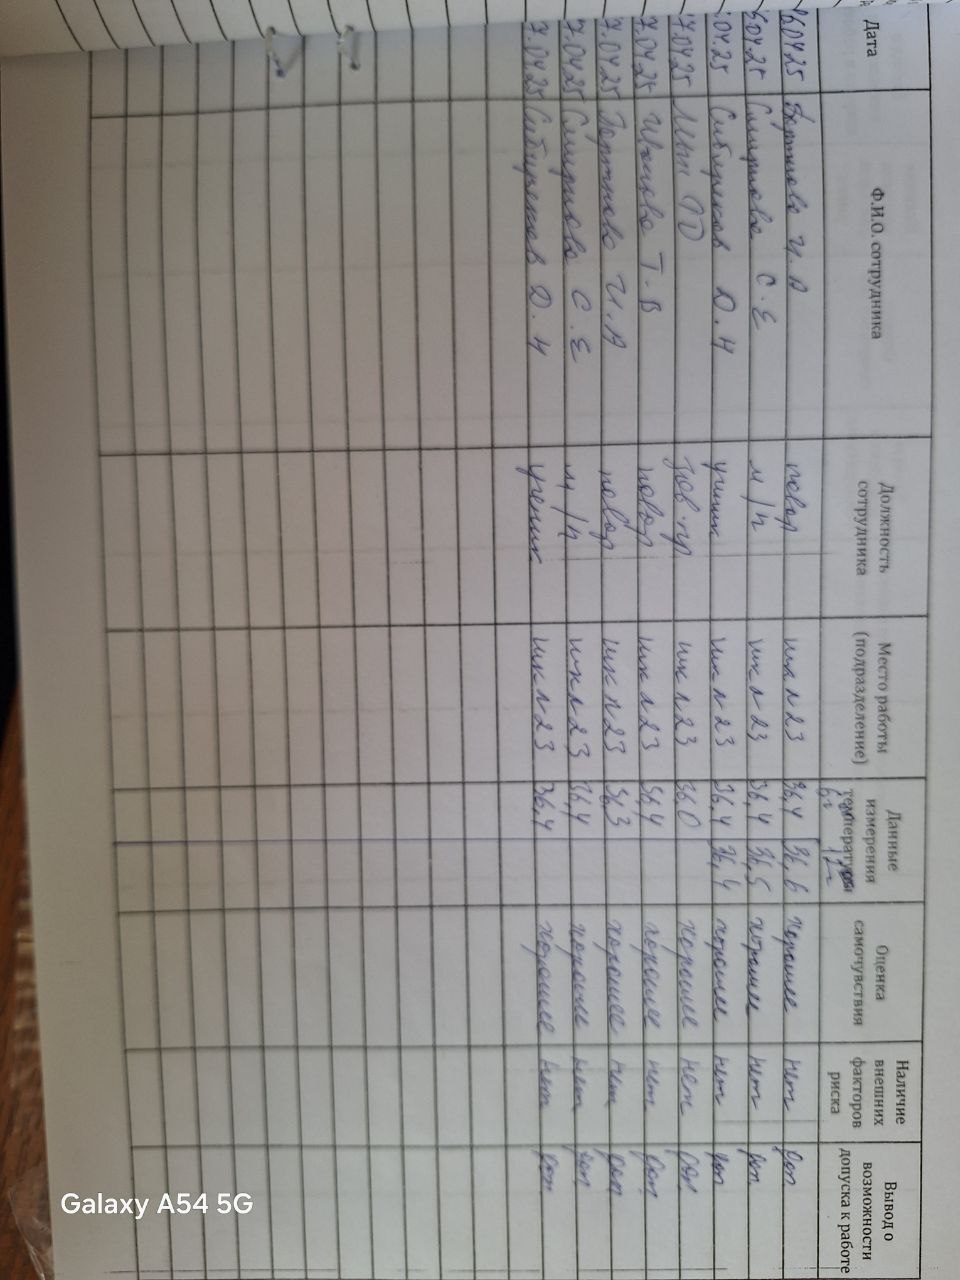 Дата Ф.И.О. сотрудника Должность сотрудника Место работы (подразделение) Данные измерения температуры Оценка самочувствия Наличие внешних факторов риска Вывод о возможности допуска к работе
04.25 И.А повар шк л 23 36,4 36,6 хорошее нет доп
04.25 Смирнова С.Е м/п шк л 23 36,4 36,5 хорошее нет доп
04.25 Д.Н ученик шк л 23 36,4 36,4 хорошее нет доп
7.04.25 зав.пр шк л 23 36,0 хорошее нет доп
7.04.25 Т.В повар шк л 23 36,4 хорошее нет доп
7.04.25 И.А повар шк л 23 36,3 хорошее нет доп
7.04.25 Смирнова С.Е м/п шк л 23 36,4 хорошее нет доп
7.04.25 Д.Н ученик шк л 23 36,4 хорошее нет доп
Galaxy A54 5G